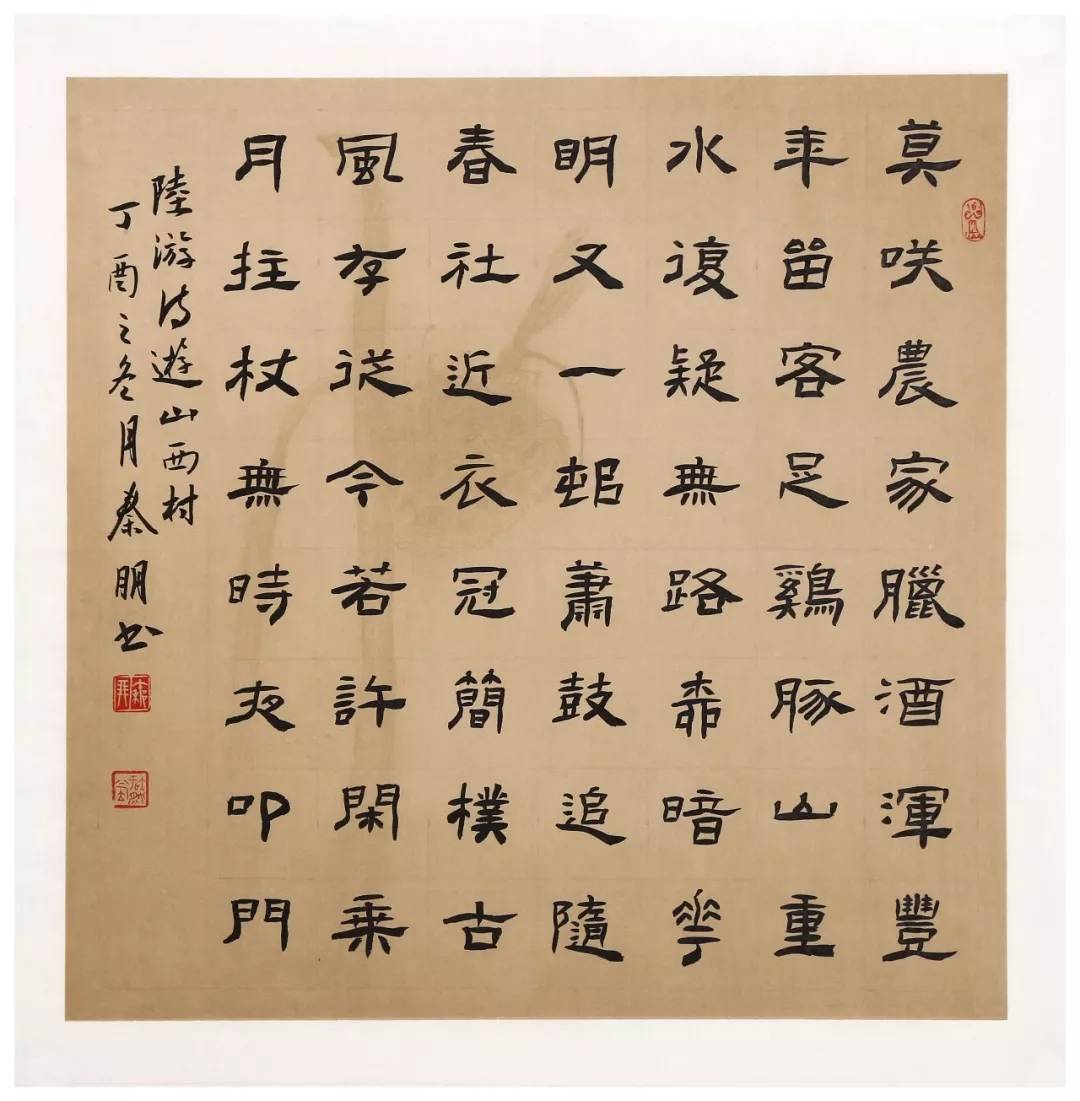 莫咲農家臘酒渾豐
年留客足鷄豚山重
水復疑無路桺暗花
明又一邨蕭鼓追隨
春社近衣冠簡樸古
風存從今若許閑乗
月拄杖無時夜叩門
陸游詩遊山西村
丁酉之冬月秦朋书